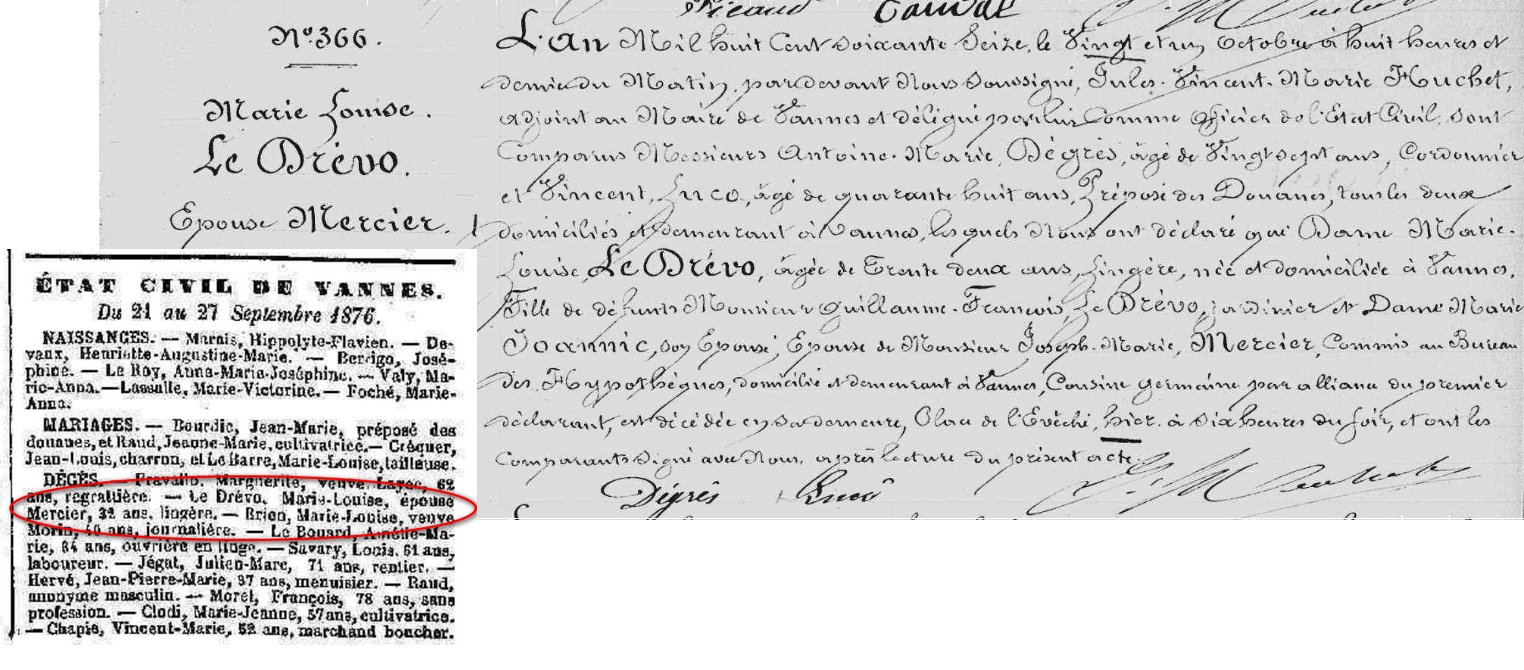 N° 366.
Marie Louise.
Le Drévo.
Epouse Mercier.
L'an Mil huit Cent Soixante Seize, le Vingt et un Octobre à huit heures et
demie du Matin, pardevant Nous Soussigné, Jules-Vincent-Marie Huchet,
adjoint au Maire de Vannes et délégué par lui Comme Officier de l'Etat Civil, sont
Comparus Messieurs Antoine-Marie, Dégrès, âgé de Vingt sept ans, Cordonnier
et Vincent, Luco, âgé de quarante huit ans, Préposé des Douanes, tous les deux
domiciliés et demeurant à Vannes, les quels Nous ont déclaré que Dame Marie-
Louise, Le Drévo, âgée de Trente deux ans, Lingère, née et domiciliée à Vannes,
Fille de défunts Monsieur Guillaume-François, Le Drévo, jardinier et Dame Marie
Joannic, son Epouse, Epouse de Monsieur Joseph-Marie, Mercier, Commis au Bureau
des Hypothèques, domicilié et demeurant à Vannes, Cousine germaine par alliance du premier
déclarant, est décédée en sa demeure, Place de l'Evêché, hier à six heures du soir, et ont les
Comparants Signé avec Nous, après lecture du présent acte.
Dégrès Luco
ÉTAT CIVIL DE VANNES.
Du 21 au 27 Septembre 1876.
NAISSANCES. — Marais, Hippolyte-Flavien. — De-
vaux, Henriette-Augustine-Marie. — Berrigo, José-
phine. — Le Roy, Anne-Marie-Joséphine. — Valy, Ma-
rie-Anna. — Lassalle, Marie-Victorine. — Foché, Marie-
Anna.
MARIAGES. — Bourdic, Jean-Marie, préposé des
douanes, et Raud, Jeanne-Marie, cultivatrice. — Créquer,
Jean-Louis, charron, et Le Barre, Marie-Louise, tailleuse.
DÉCÈS. — Marguerite, veuve Layec, 62
ans, regrattière. — Le Drévo, Marie-Louise, épouse
Mercier, 32 ans, lingère. — Brien, Marie-Louise, veuve
Morin, ans, journalière. — Le Bouard, Ma-
rie, 64 ans, ouvrière en linge. — Savary, Louis, 61 ans,
laboureur. — Jégat, Julien-Marc, 71 ans, rentier. —
Hervé, Jean-Pierre-Marie, 37 ans, menuisier. — Raud,
anonyme masculin. — Moret, François, 78 ans, sans
profession. — Clodi, Marie-Jeanne, 57 ans, cultivatrice.
— Chapis, Vincent-Marie, 52 ans, marchand boucher.